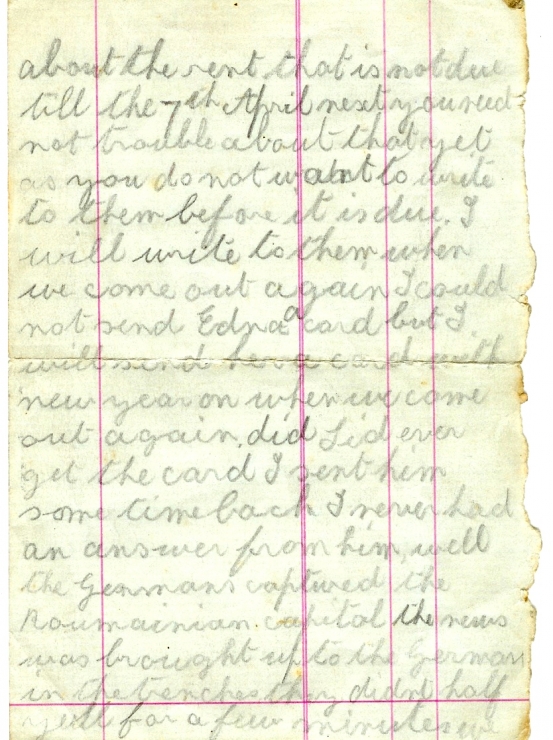 about the rent that is not due
till the 7th April next you need
not trouble about that yet
as you do not want to write
to them before it is due. I
will write to them when
we come out again I could
not send Edna a card but I
will send her a card with
new year on when we come
out again, did Sid ever
get the card I sent him
some time back I never had
an answer from him, well
the Germans captured the
Roumainian capital the news
was brought up to the German
in the trenches they didnt half
yell for a few minutes we